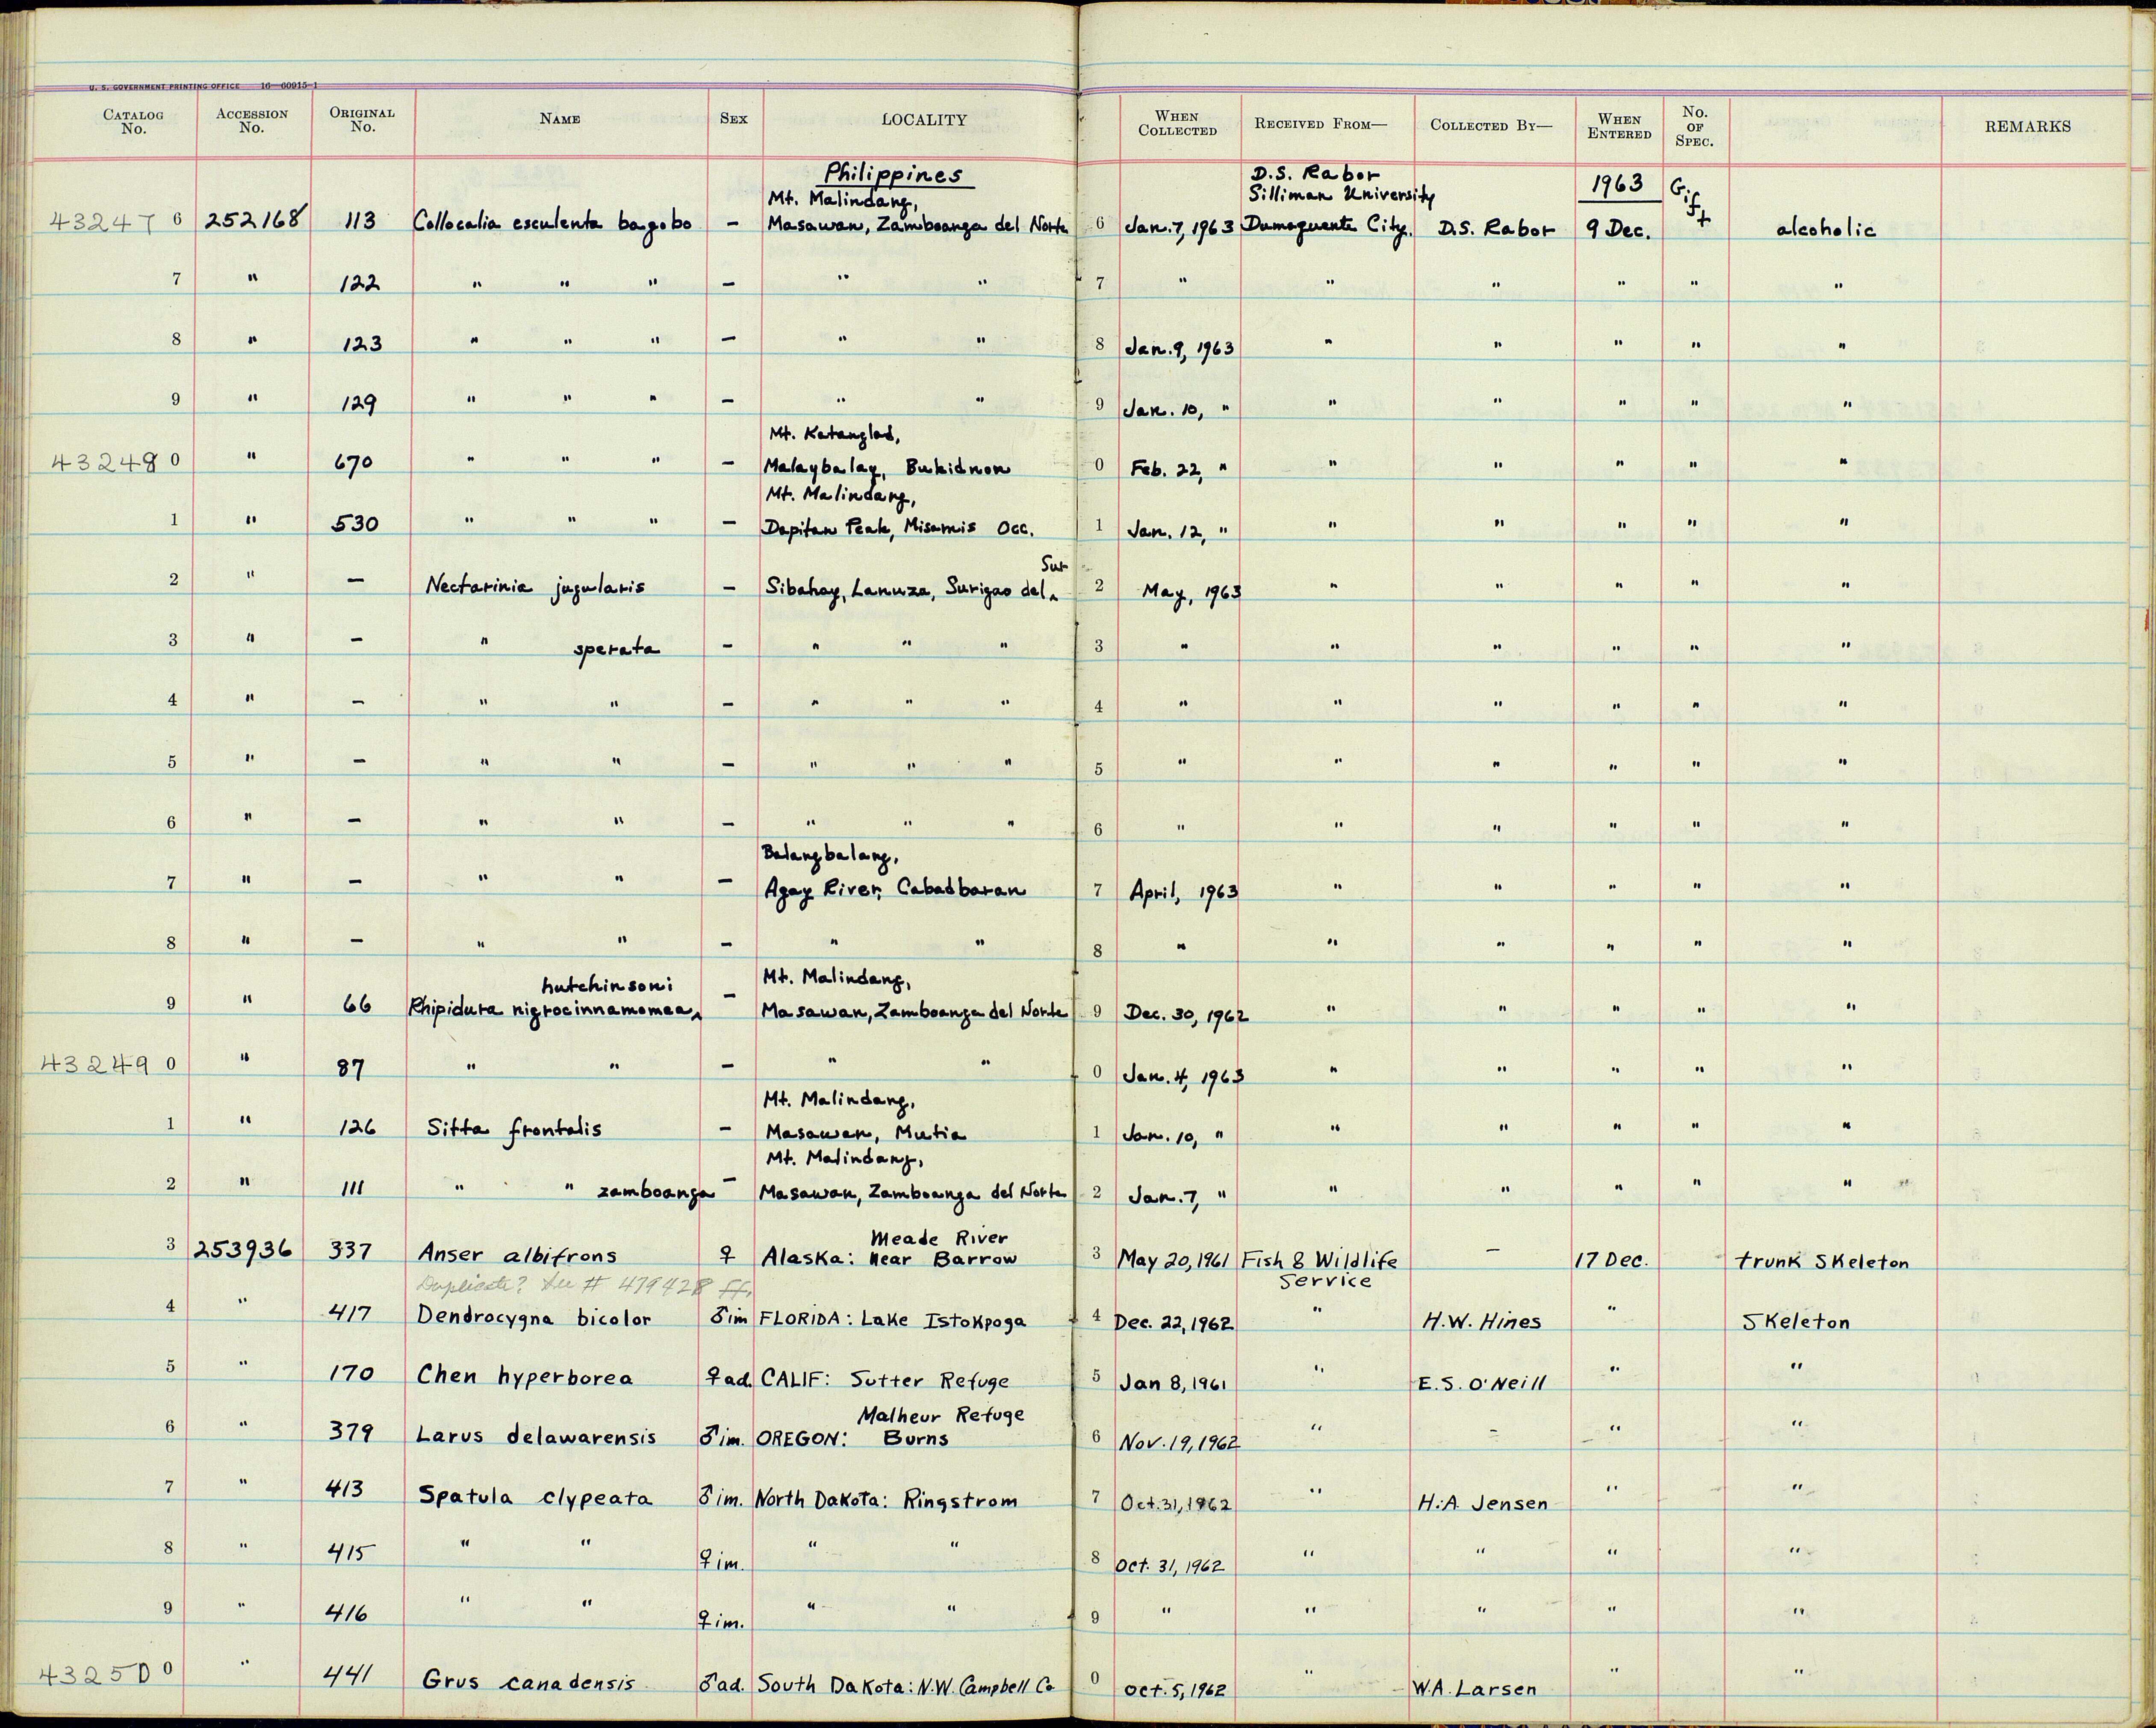 U. S. GOVERNMENT PRINTING OFFICE 16—60915-1
CATALOG No. ACCESSION No. ORIGINAL No. NAME SEX LOCALITY WHEN COLLECTED RECEIVED FROM— COLLECTED BY— WHEN ENTERED NO. OF SPEC. REMARKS
Philippines D.S. Rabor
Mt. Malindang, Silliman University 1963 Gift
43247 6 252168 113 Collocalia esculenta bagobo – Masawan, Zamboanga del Norte 6 Jan. 7, 1963 Dumaguente City. D.S. Rabor 9 Dec. alcoholic
7 " 122 " " " – " " 7 " " " " " "
8 " 123 " " " – " " 8 Jan. 9, 1963 " " " " "
9 " 129 " " " – " " 9 Jan. 10, " " " " " "
Mt. Katanglad,
43248 0 " 670 " " " – Malaybalay, Bukidnon 0 Feb. 22, " " " " " "
Mt. Malindang,
1 " 530 " " " – Dapitan Peak, Misamis Occ. 1 Jan. 12, " " " " " "
Sur
2 " – Nectarinia jugularis – Sibahay, Lanuza, Surigao del ^ 2 May, 1963 " " " " "
3 " – " sperata – " " " 3 " " " " " "
4 " – " " – " " " 4 " " " " " "
5 " – " " – " " " 5 " " " " " "
6 " – " " – " " " 6 " " " " " "
Balangbalang,
7 " – " " – Agay River, Cabadbaran 7 April, 1963 " " " " "
8 " – " " – " " 8 " " " " " "
hutchinsoni Mt. Malindang,
9 " 66 Rhipidura nigrocinnamomea ^ – Masawan, Zamboanga del Norte 9 Dec. 30, 1962 " " " " "
43249 0 " 87 " " – " " 0 Jan. 4, 1963 " " " " "
Mt. Malindang,
1 " 126 Sitta frontalis – Masawan, Mutia 1 Jan. 10, " " " " " "
Mt. Malindang,
2 " 111 " " zamboanga – Masawan, Zamboanga del Norte 2 Jan. 7, " " " " " "
Meade River
3 253936 337 Anser albifrons ♀ Alaska: near Barrow 3 May 20, 1961 Fish & Wildlife Service – 17 Dec. trunk skeleton
Duplicate? See # 479428 ff.
4 " 417 Dendrocygna bicolor ♂im FLORIDA: Lake Istokpoga 4 Dec. 22, 1962 " H.W. Hines " Skeleton
5 " 170 Chen hyperborea ♀ad. CALIF: Sutter Refuge 5 Jan 8, 1961 " E.S. O'Neill " "
Malheur Refuge
6 " 379 Larus delawarensis ♂im. OREGON: Burns 6 Nov. 19, 1962 " – " "
7 " 413 Spatula clypeata ♂im. North Dakota: Ringstrom 7 Oct. 31, 1962 " H.A. Jensen " "
8 " 415 " " ♀im. " " 8 Oct. 31, 1962 " " " "
9 " 416 " " ♀im. " " 9 " " " " "
43250 0 " 441 Grus canadensis ♂ad. South Dakota: N.W. Campbell Co 0 Oct. 5, 1962 " W.A. Larsen " "